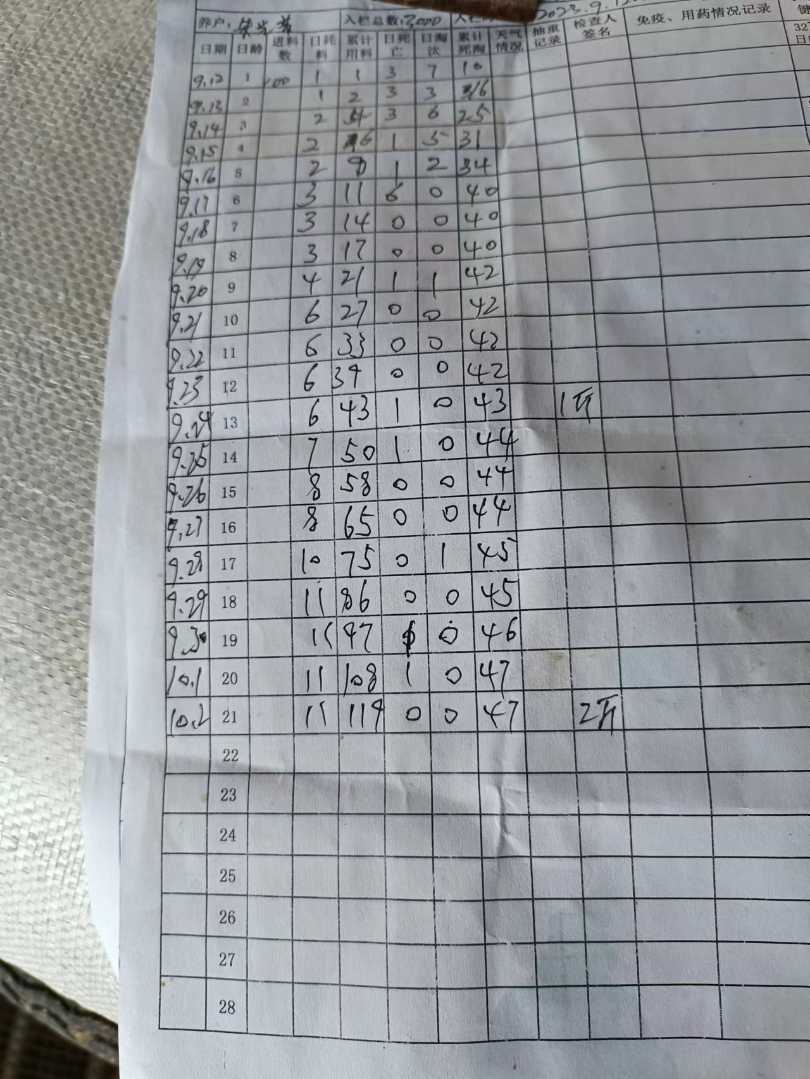 养户: 入栏总数:3000 2023.9.12
日期 日龄 进料数 日耗料 累计用料 日死亡 日淘汰 累计死淘 天气情况 抽重记录 检查人签名 免疫、用药情况记录
9.12 1 100 1 1 3 7 10
9.13 2 1 2 3 3 16
9.14 3 2 4 3 6 25
9.15 4 2 6 1 5 31
9.16 5 2 8 1 2 34
9.17 6 3 11 6 0 40
9.18 7 3 14 0 0 40
9.19 8 3 17 0 0 40
9.20 9 4 21 1 1 42
9.21 10 6 27 0 0 42
9.22 11 6 33 0 0 42
9.23 12 6 39 0 0 42
9.24 13 6 43 1 0 43 1瓦
9.25 14 7 50 1 0 44
9.26 15 8 58 0 0 44
9.27 16 8 65 0 0 44
9.28 17 10 75 0 1 45
9.29 18 11 86 0 0 45
9.30 19 11 97 1 0 46
10.1 20 11 108 1 0 47
10.2 21 11 119 0 0 47 2瓦
22
23
24
25
26
27
28